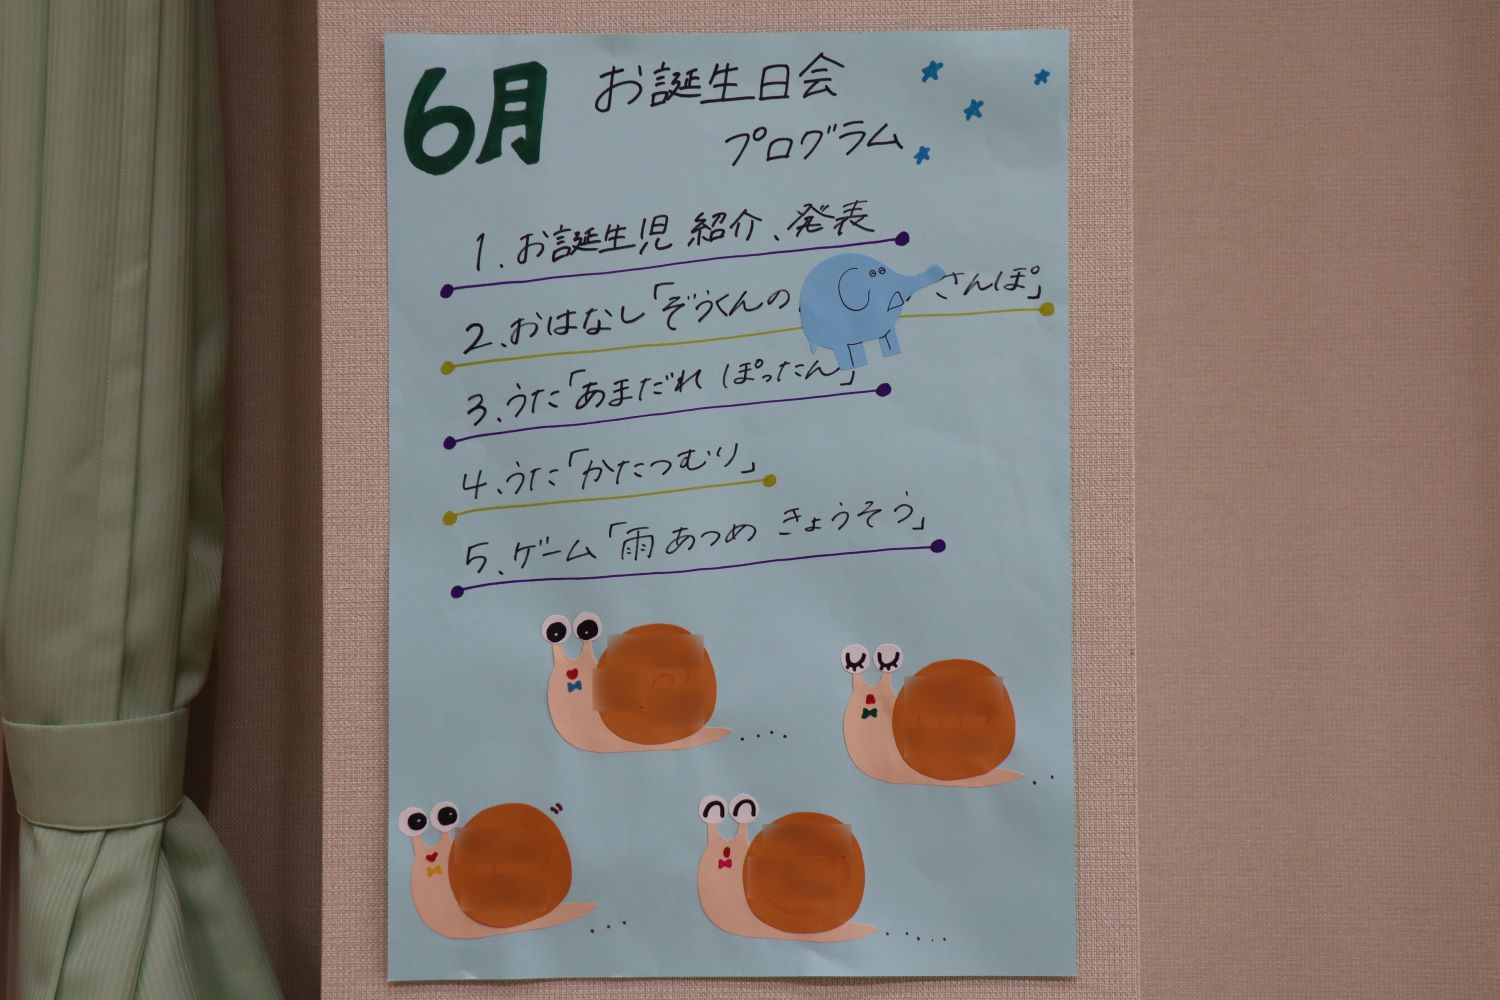 6月 お誕生日会
プログラム
1. お誕生児 紹介、発表
2. おはなし「ぞうくんの さんぽ」
3. うた「あまだれ ぽったん」
4. うた「かたつむり」
5. ゲーム「雨あつめ きょうそう」